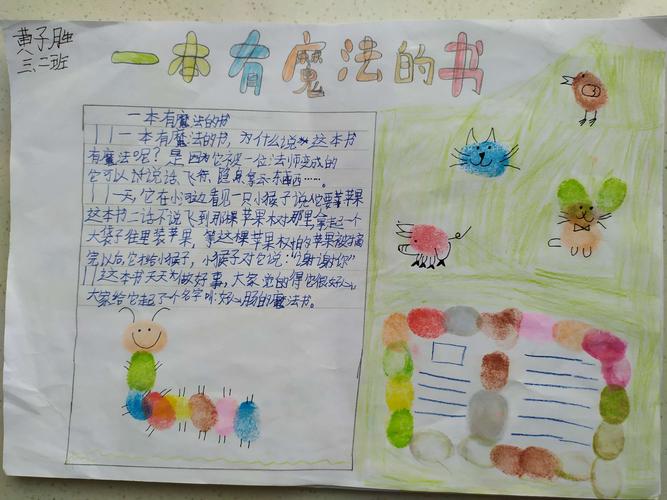 黄子胜
三、二班
一本有魔法的书
一本有魔法的书
一本有魔法的书，为什么说这本书
有魔法呢？是因为它不是一位法师变成的
它可以说话、飞行、隐身、拿东西……。
一天，它在小路边看见一只小猴子说他要拿苹果
这本书二话不说飞到那棵苹果树那里拿起一个
大袋子往里装苹果，等这棵苹果树的苹果被摘
完以后，它才给小猴子，小猴子对它说："谢谢你"
这本书天天为做好事，大家觉的得它很好心，
大家给它起了个名字叫：好心肠的魔法书。